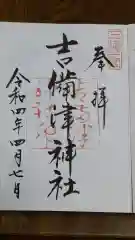 奉拝
吉備津神社
令和四年四月七日